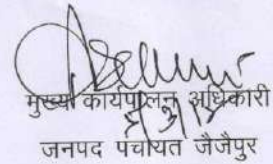 मुख्य कार्यपालन अधिकारी
जनपद पंचायत जैजैपुर